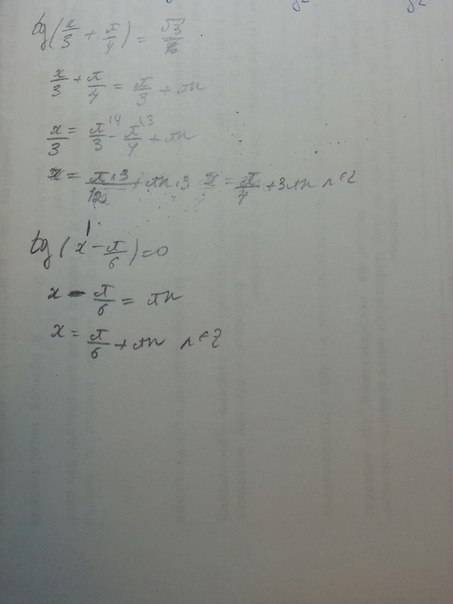 tg(x/3 + π/4) = √3
x/3 + π/4 = π/3 + πn
x/3 = π/3 - π/4 + πn
x = π·3/12 + πn·3 x = π/4 + 3πn n∈Z
tg(x - π/6) = 0
x - π/6 = πn
x = π/6 + πn n∈Z